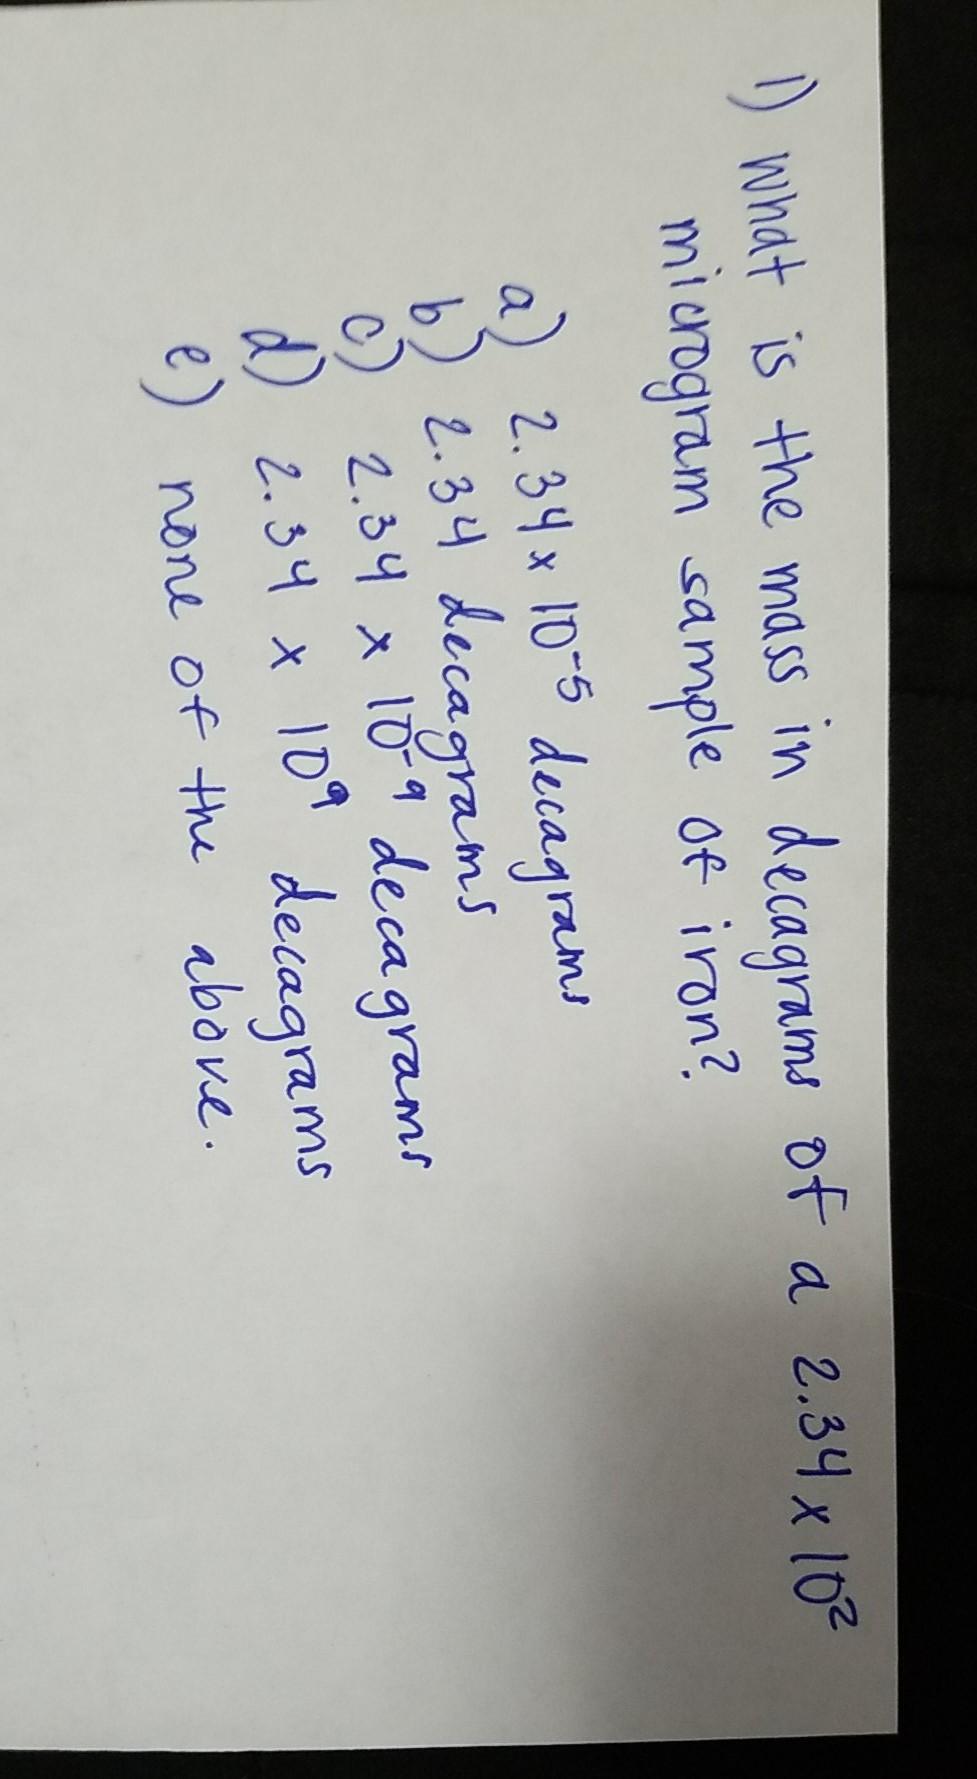 1) What is the mass in decagrams of a 2.34 x 10²
microgram sample of iron?
a) 2.34 x 10⁻⁵ decagrams
b) 2.34 decagrams
c) 2.34 x 10⁻⁹ decagrams
d) 2.34 x 10⁹ decagrams
e) none of the above.